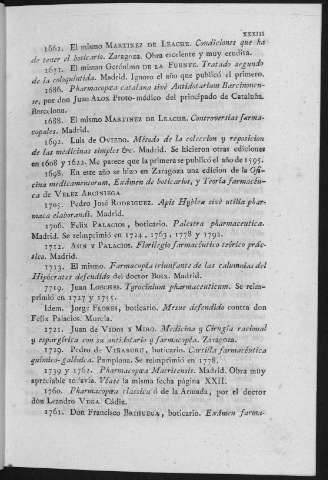 XXXIII
1662. El mismo MARTINEZ DE LEACHE. Condiciones que ha
de tener el boticario. Zaragoza. Obra excelente y muy erudita.
1671. El mismo Gerónimo DE LA FUENTE. Tratado segundo
de la coloquintida. Madrid. Ignoro el año que publicó el primero.
1686. Pharmacopea catalana sivè Antidotarium Barcinonen-
se, por don Juan ALOS Proto-médico del principado de Cataluña.
Barcelona.
1688. El mismo MARTINEZ DE LEACHE. Controversias farma-
copales. Madrid.
1692. Luis de OVIEDO. Método de la coleccion y reposicion
de las medicinas simples &c. Madrid. Se hicieron otras ediciones
en 1608 y 1622. Me parece que la primera se publicó el año de 1595.
1698. En este año se hizo en Zaragoza una edicion de la Ofi-
cina medicamentorum, Exámen de boticarios, y Teoría farmacéu-
ca de VELEZ ARCINIEGA.
1705. Pedro José RODRIGUEZ. Apis Hyblea sivè utilia phar-
maca elaborandi. Madrid.
1706. Felix PALACIOS, boticario. Palestra pharmaceutica.
Madrid. Se reimprimió en 1724, 1763, 1778 y 1792.
1712. ASIN Y PALACIOS. Florilegio farmacéutico teórico prác-
tico. Madrid.
1713. El mismo. Farmacopea triunfante de las calumnias del
Hipócrates defendido del doctor BOIX. Madrid.
1719. Juan LOECHES. Tyrocinium pharmaceuticum. Se reim-
primió en 1727 y 1755.
Idem. Jorge FLORES, boticario. Mesue defendido contra don
Félix Palacios. Murcia.
1721. Juan de VIDOS Y MIRO. Medicina y Cirugía racional
y espargírica con su antidotario y farmacopea. Zaragoza.
1729. Pedro de VIÑABURU, boticario. Cartilla farmacéutica
químico-galénica. Pamplona. Se reimprimió en 1778.
1739 y 1762. Pharmacopœa Matritensis. Madrid. Obra muy
apreciable todavía. Véase la misma fecha página XXII.
1760. Pharmacopœa classica ó de la Armada, por el doctor
don Leandro VEGA. Cádiz.
1761. Don Francisco BRIHUEGA, boticario. Exámen farma-